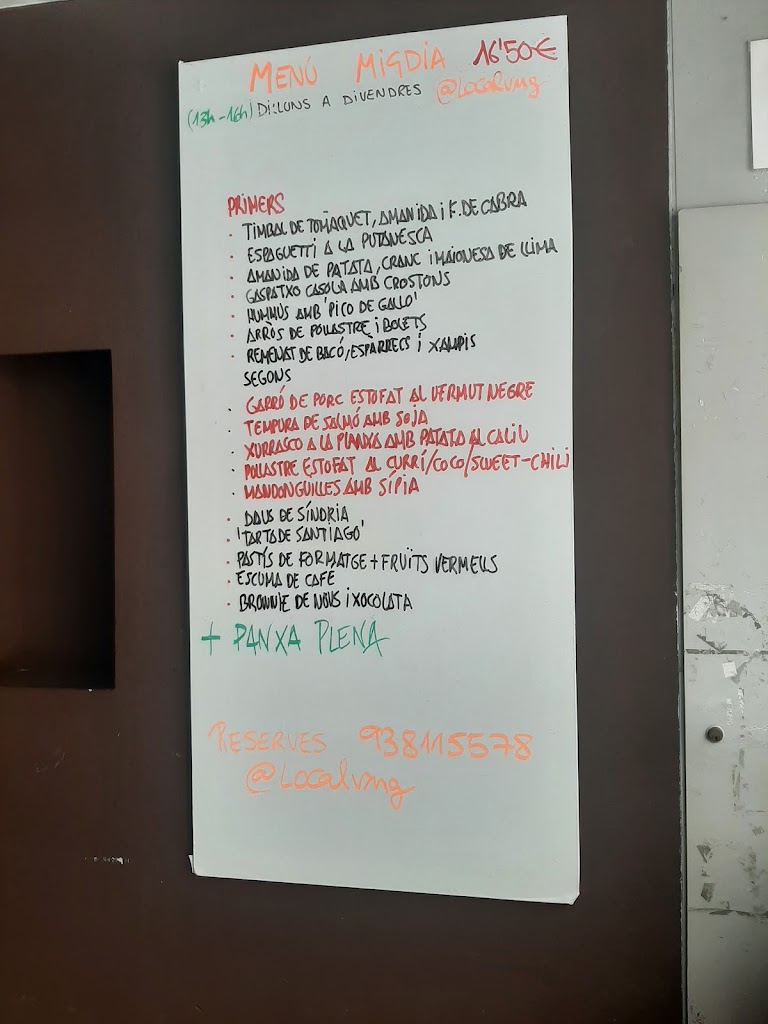 MENÚ MIGDIA 16'50€
(13h-16h) DILLUNS A DIVENDRES @Localvng
PRIMERS
· TIMBAL DE TOMÀQUET, AMANIDA i F. DE CABRA
· ESPAGUETTI A LA PUTANESCA
· AMANIDA DE PATATA, CRANC i MAIONESA DE LLIMA
· GASPATXO CASOLÀ AMB CROSTONS
· HUMMUS AMB 'PICO DE GALLO'
· ARRÒS DE POLLASTRE i BOLETS
· REMENAT DE BACÓ, ESPÀRRECS i XAMPIS
SEGONS
· GARRÓ DE PORC ESTOFAT AL VERMUT NEGRE
· TEMPURA DE SALMÓ AMB SOJA
· XURRASCO A LA PLANXA AMB PATATA AL CALIU
· POLLASTRE ESTOFAT AL CURRI/COCO/SWEET-CHILI
· MANDONGUILLES AMB SÍPIA
· DAUS DE SÍNDRIA
· 'TARTA DE SANTIAGO'
· PASTÍS DE FORMATGE + FRUÏTS VERMELLS
· ESCUMA DE CAFÈ
· BROWNIE DE NOUS i XOCOLATA
+ PANXA PLENA
RESERVES 938115578
@Localvng